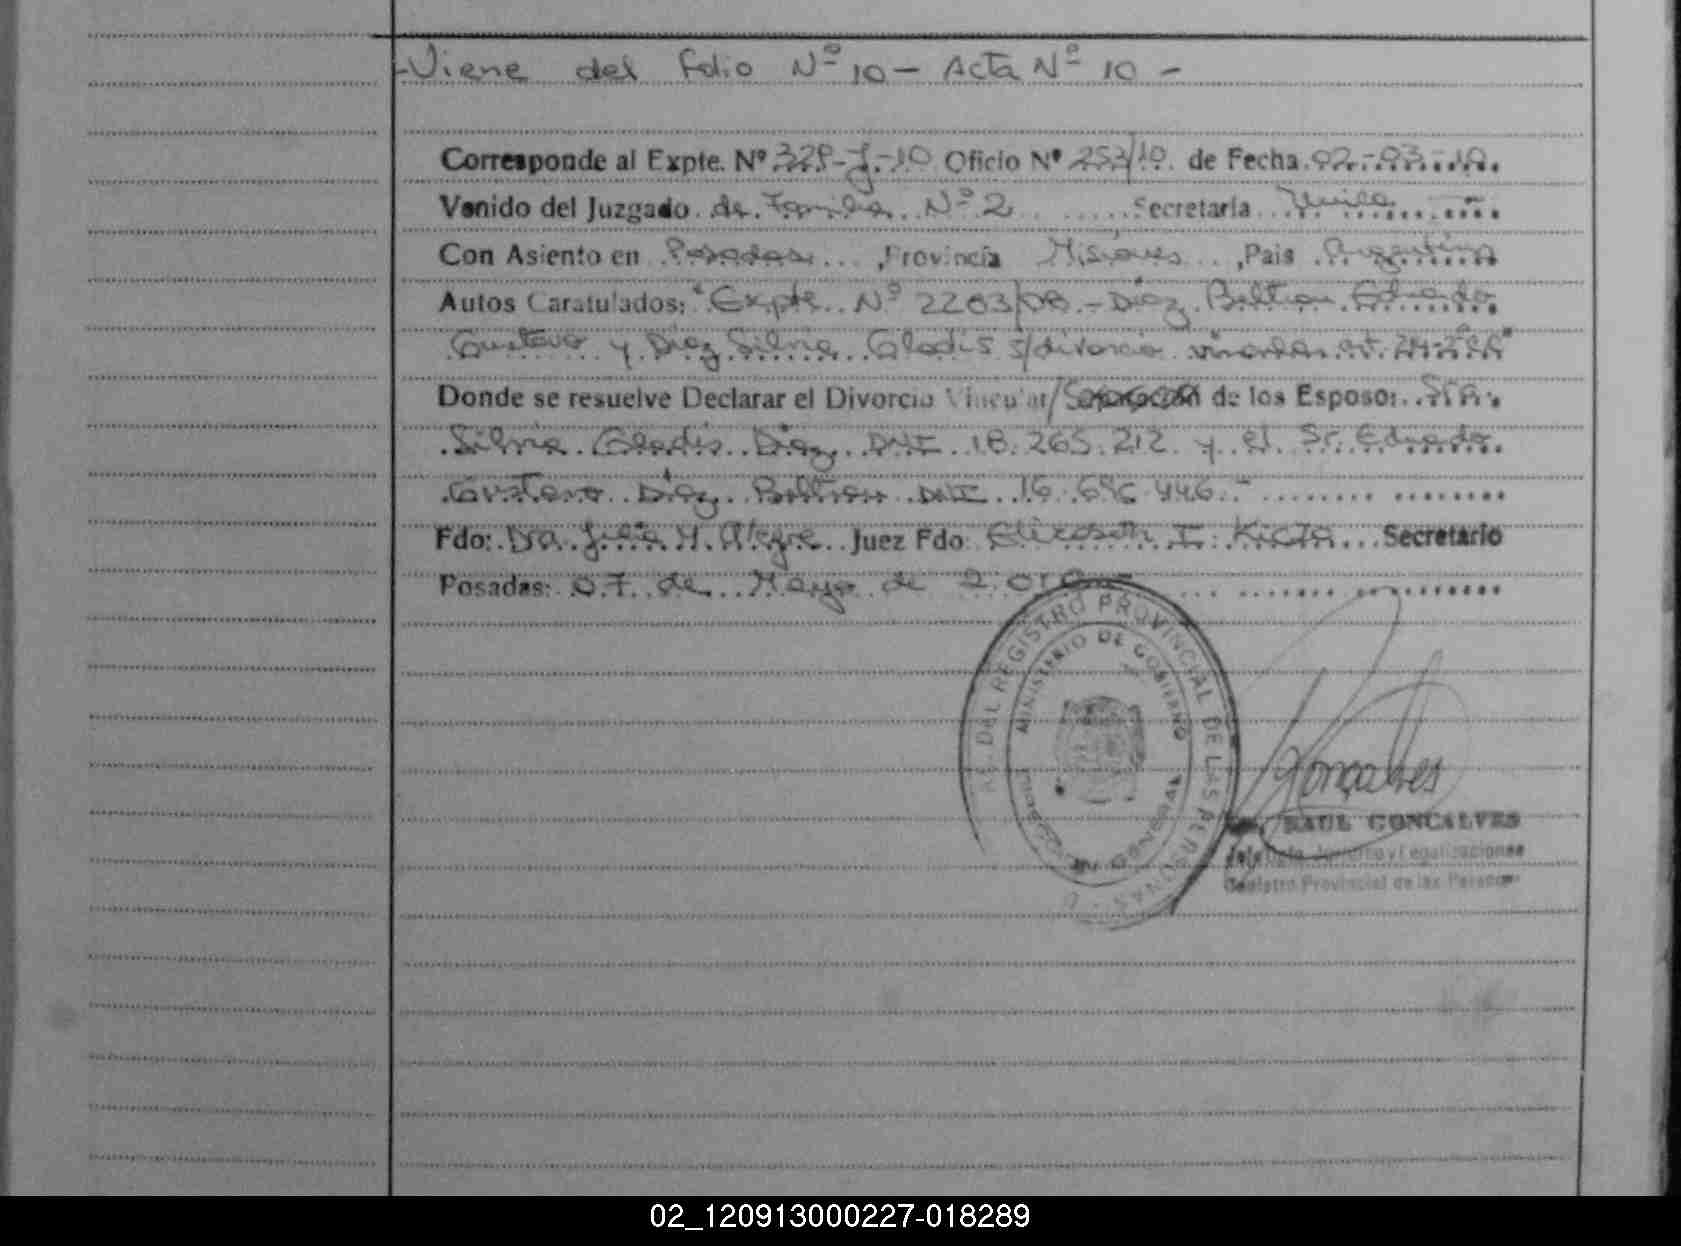 -Viene del folio Nº 10 - Acta Nº 10 -
Corresponde al Expte. Nº 328-J-10 Oficio Nº 253/10 de Fecha 02-03-10
Venido del Juzgado de Familia Nº 2 Secretaria Unica
Con Asiento en Posadas, Provincia Misiones, Pais Argentina
Autos Caratulados: "Expte. Nº 2203/08.- Diaz Beltran Eduardo
Gustavo y Diaz Silvia Gladis s/divorcio vincular art.
Donde se resuelve Declarar el Divorcio Vincular/Separación de los Esposo: Sra.
Silvia Gladis Diaz DNI 18.265.212 y el Sr. Eduardo
Gustavo Diaz Beltran DNI 16.696.446.-
Fdo: Dra. Julia M. Alegre Juez Fdo: Elizabeth I. Kiczka Secretario
Posadas: 07 de Mayo de 2.010.-
DEL REGISTRO PROVINCIAL DE LAS PERSONAS
MINISTERIO DE GOBIERNO
Gonçalves
RAUL GONCALVES
Jurídico y Legalizaciones
Registro Provincial de las Personas
02_120913000227-018289